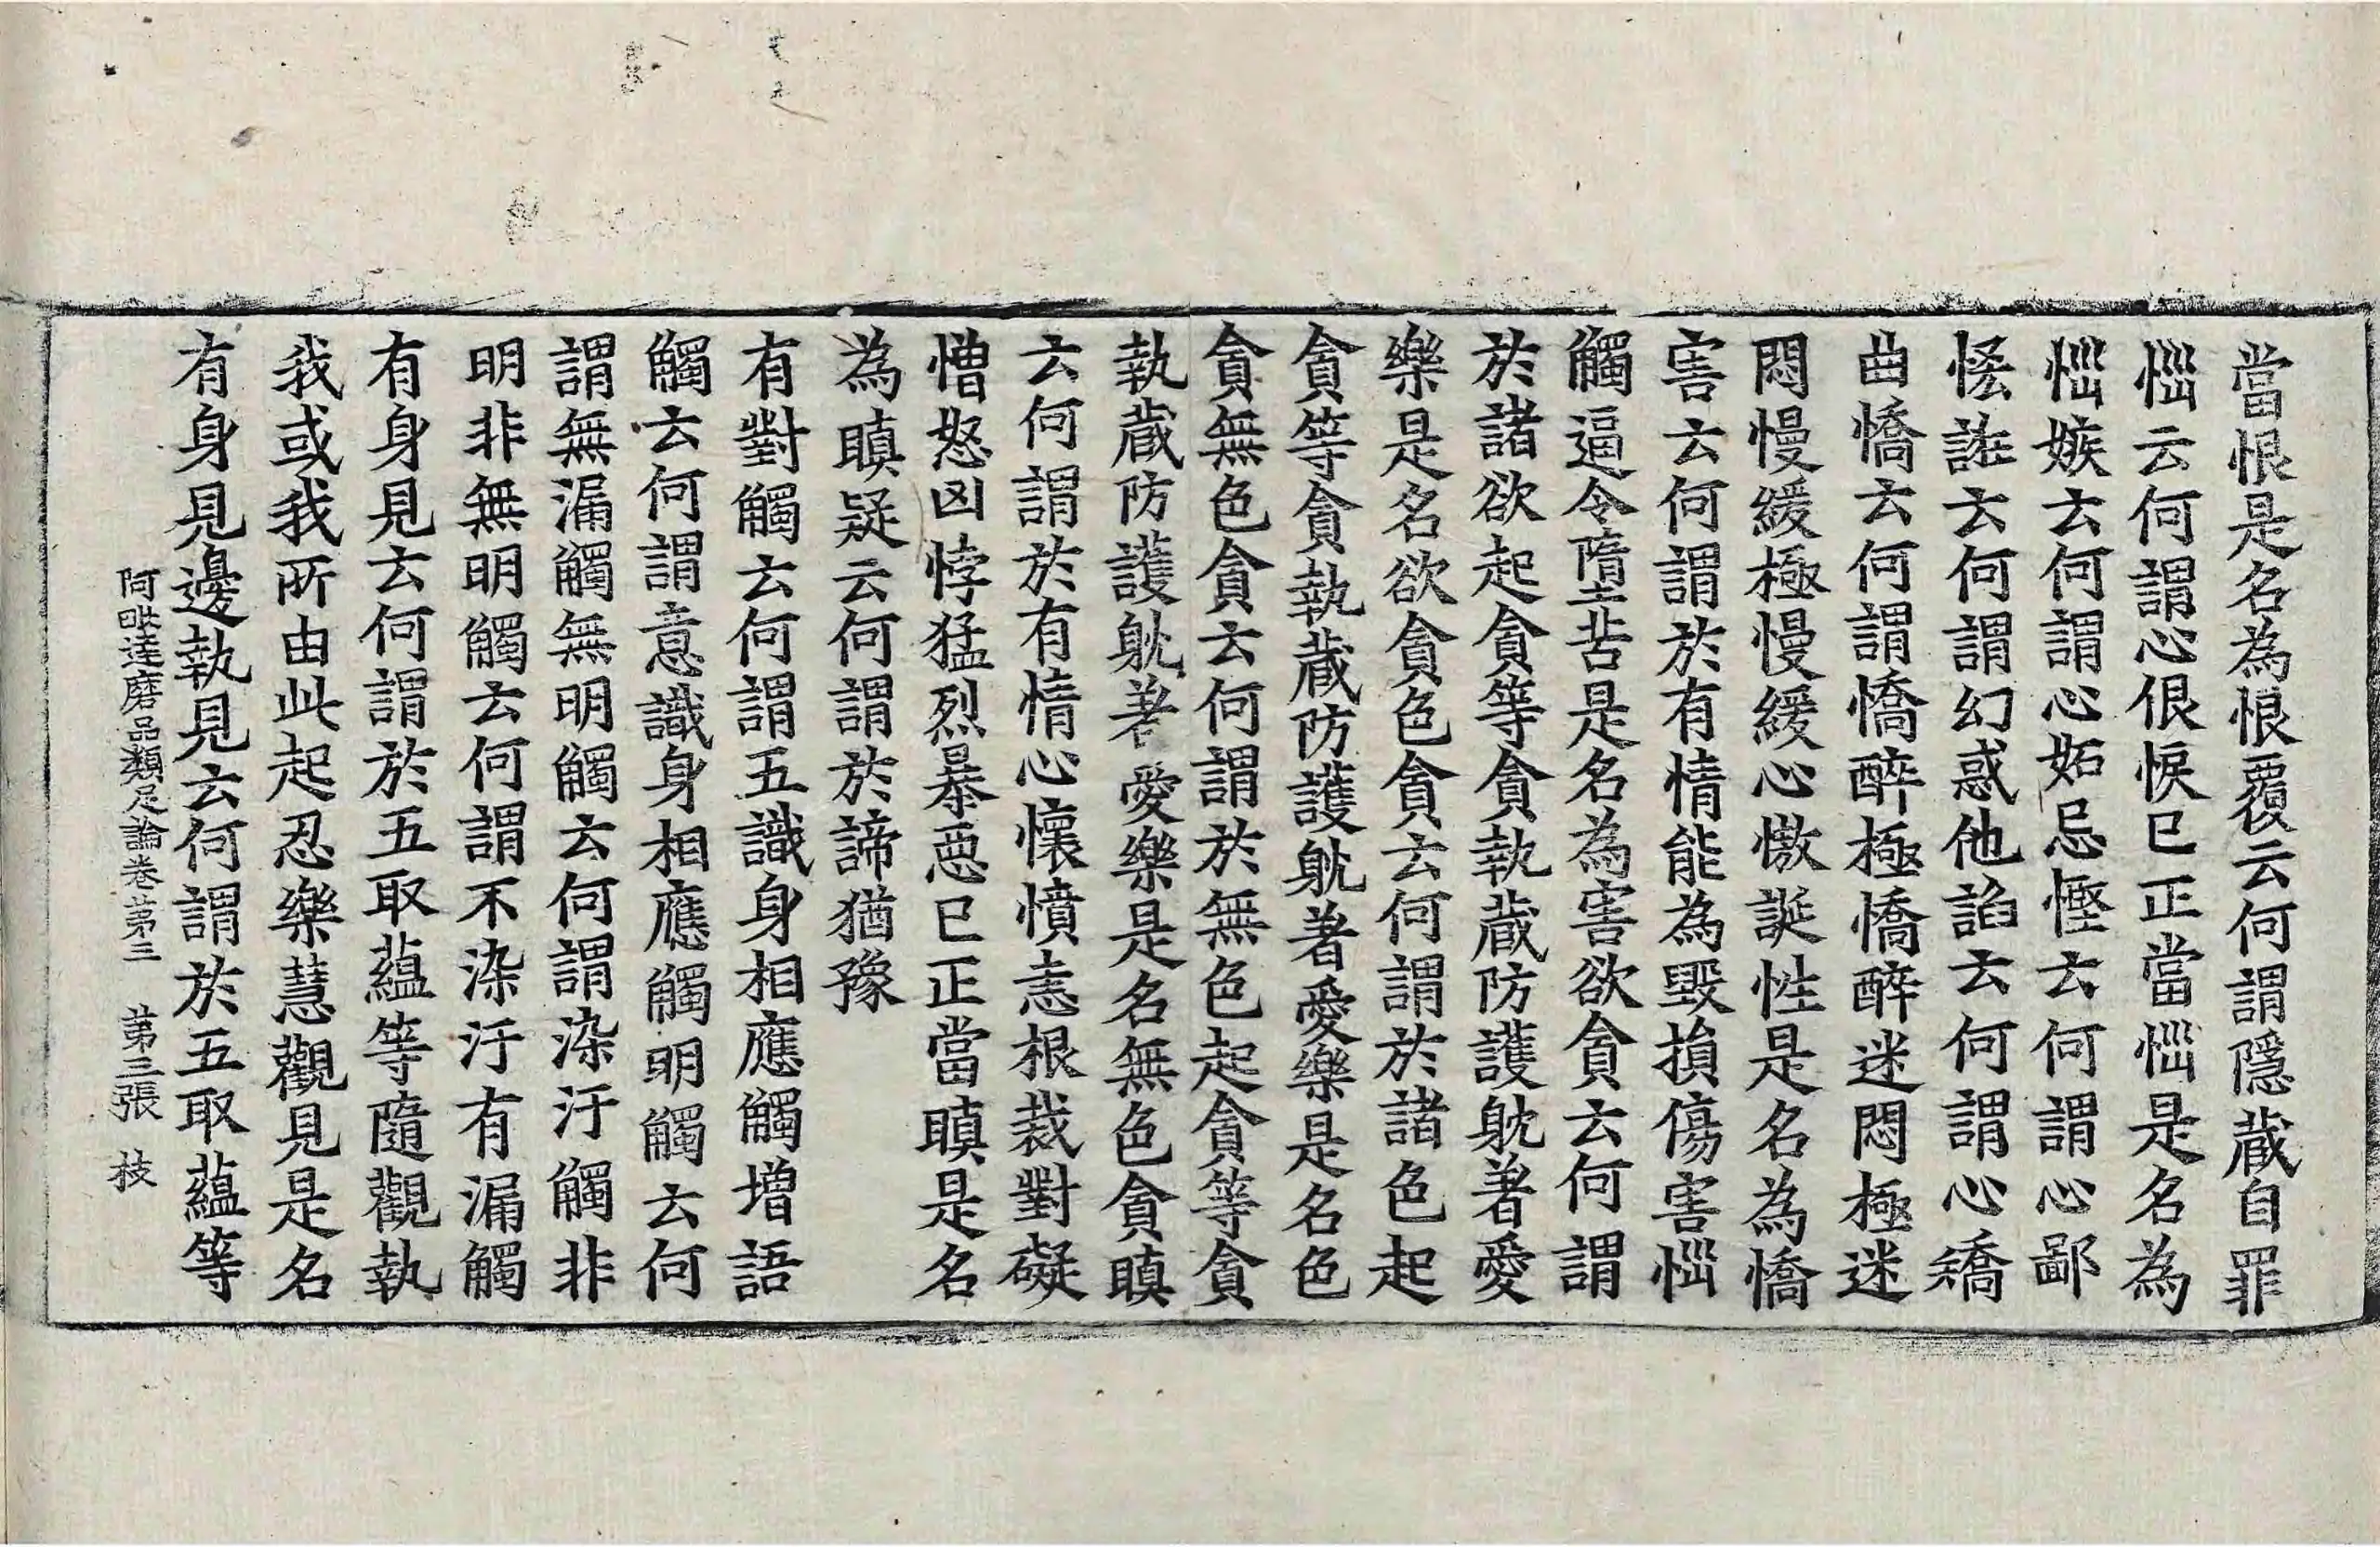 當恨是名為恨覆云何謂隱蔵自罪
惱云何謂心佷悷已正當惱是名為
惱嫉云何謂心妬忌慳云何謂心鄙
恡誑云何謂幻惑他諂云何謂心矯
曲憍云何謂憍醉極憍醉迷悶極迷
悶慢緩極慢緩心慠誕性是名為憍
害云何謂於有情能為毀損傷害惱
觸逼令墮苦是名為害欲貪云何謂
於諸欲起貪等貪執蔵防護躭著愛
樂是名欲貪色貪云何謂於諸色起
貪等貪執蔵防護躭著愛樂是名色
貪無色貪云何謂於無色起貪等貪
執蔵防護躭著愛樂是名無色貪瞋
云何謂於有情心懷憤恚根裁對礙
憎怒凶悖猛烈暴惡已正當瞋是名
為瞋疑云何謂於諦猶豫
有對觸云何謂五識身相應觸增語
觸云何謂意識身相應觸明觸云何
謂無漏觸無明觸云何謂染汙觸非
明非無明觸云何謂不染汙有漏觸
有身見云何謂於五取蘊等隨觀執
我或我所由此起忍樂慧觀見是名
有身見邊執見云何謂於五取蘊等
阿毗達磨品類足論卷第三 第三張 枝